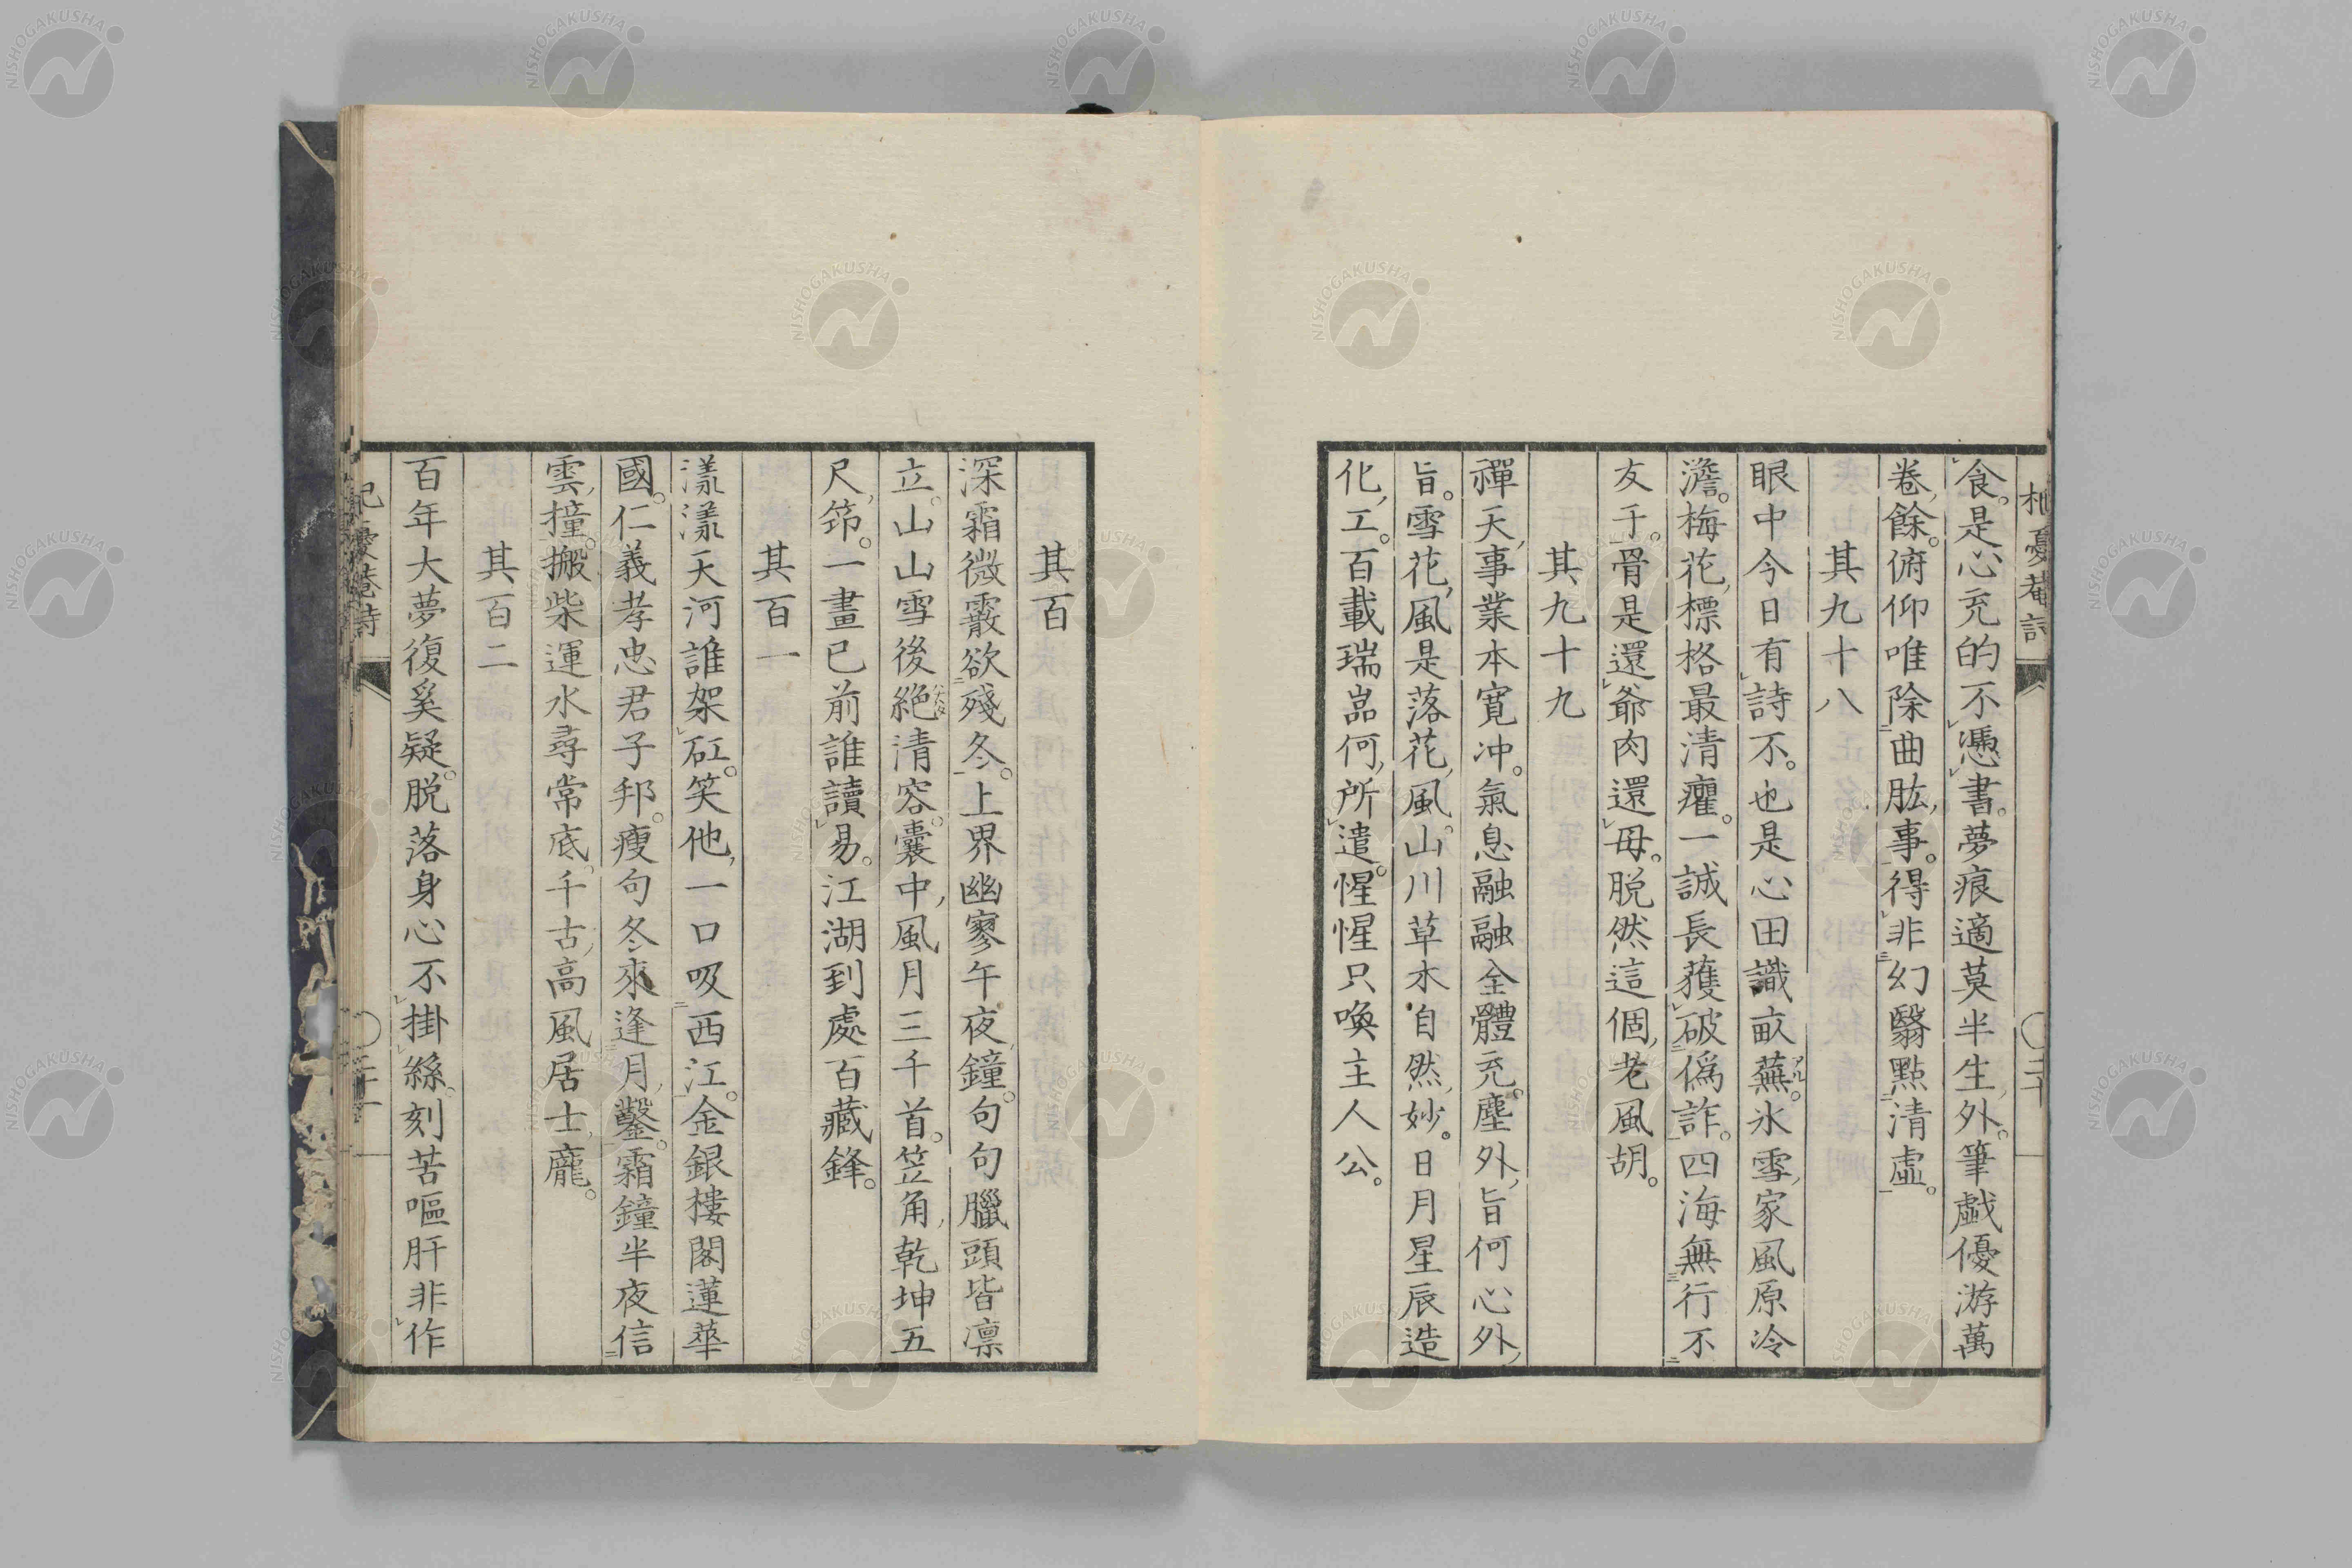 杞憂菴詩
〇二十
食。是心充的不憑書。夢痕適莫半生外。筆戯優游萬
卷餘。俯仰唯除曲肱事。得非幻翳點清虛。
其九十八
眼中今日有詩不。也是心田識畝蕪。氷雪家風原冷
澹。梅花標格最清癯。一誠長獲破僞詐。四海無行不
友于。骨是還爺肉還母。脱然這個老風胡。
其九十九
禪天事業本寛冲。氣息融融全體充。塵外旨何心外
旨。雪花風是落花風。山川草木自然妙。日月星辰造
化工。百載瑞嵓何所遣。惺惺只喚主人公。
其百
深霜微霰欲殘冬。上界幽寥午夜鐘。句句臘頭皆凛
立。山山雪後絶清容。囊中風月三千首。笠角乾坤五
尺筇。一畫已前誰讀易。江湖到處百藏鋒。
其百一
漾漾天河誰架矼。笑他一口吸西江。金銀樓閣蓮華
國。仁義孝忠君子邦。瘦句冬來逢月鑿。霜鐘半夜信
雲撞。搬柴運水尋常底。千古高風居士龐。
其百二
百年大夢復奚疑。脱落身心不掛絲。刻苦嘔肝非作
杞憂菴詩
〇二十一
NISHOGAKUSHA